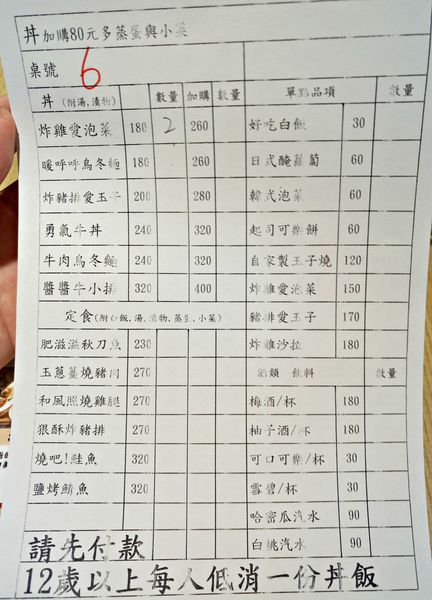 丼加購80元多蒸蛋與小菜
桌號 6
丼(附湯,漬物) 數量 加購 數量 單點品項 數量
炸雞愛泡菜 180 2 260 好吃白飯 30
暖呼呼烏冬麵 180 260 日式醃蘿蔔 60
炸豬排愛玉子 200 280 韓式泡菜 60
勇氣牛丼 240 320 起司可樂餅 60
牛肉烏冬麵 240 320 自家製玉子燒 120
醬醬牛小排 320 400 炸雞愛泡菜 150
定食(附白飯,湯,漬物,蒸蛋,小菜) 豬排愛玉子 170
肥滋滋秋刀魚 230 炸雞沙拉 180
玉蔥薑燒豬肉 270 酒類 飲料 數量
和風照燒雞腿 270 梅酒/杯 180
狠酥炸豬排 270 柚子酒/杯 180
燒吧!鮭魚 320 可口可樂/杯 30
鹽烤鯖魚 320 雪碧/杯 30
哈密瓜汽水 90
請先付款 白桃汽水 90
12歲以上每人低消一份丼飯